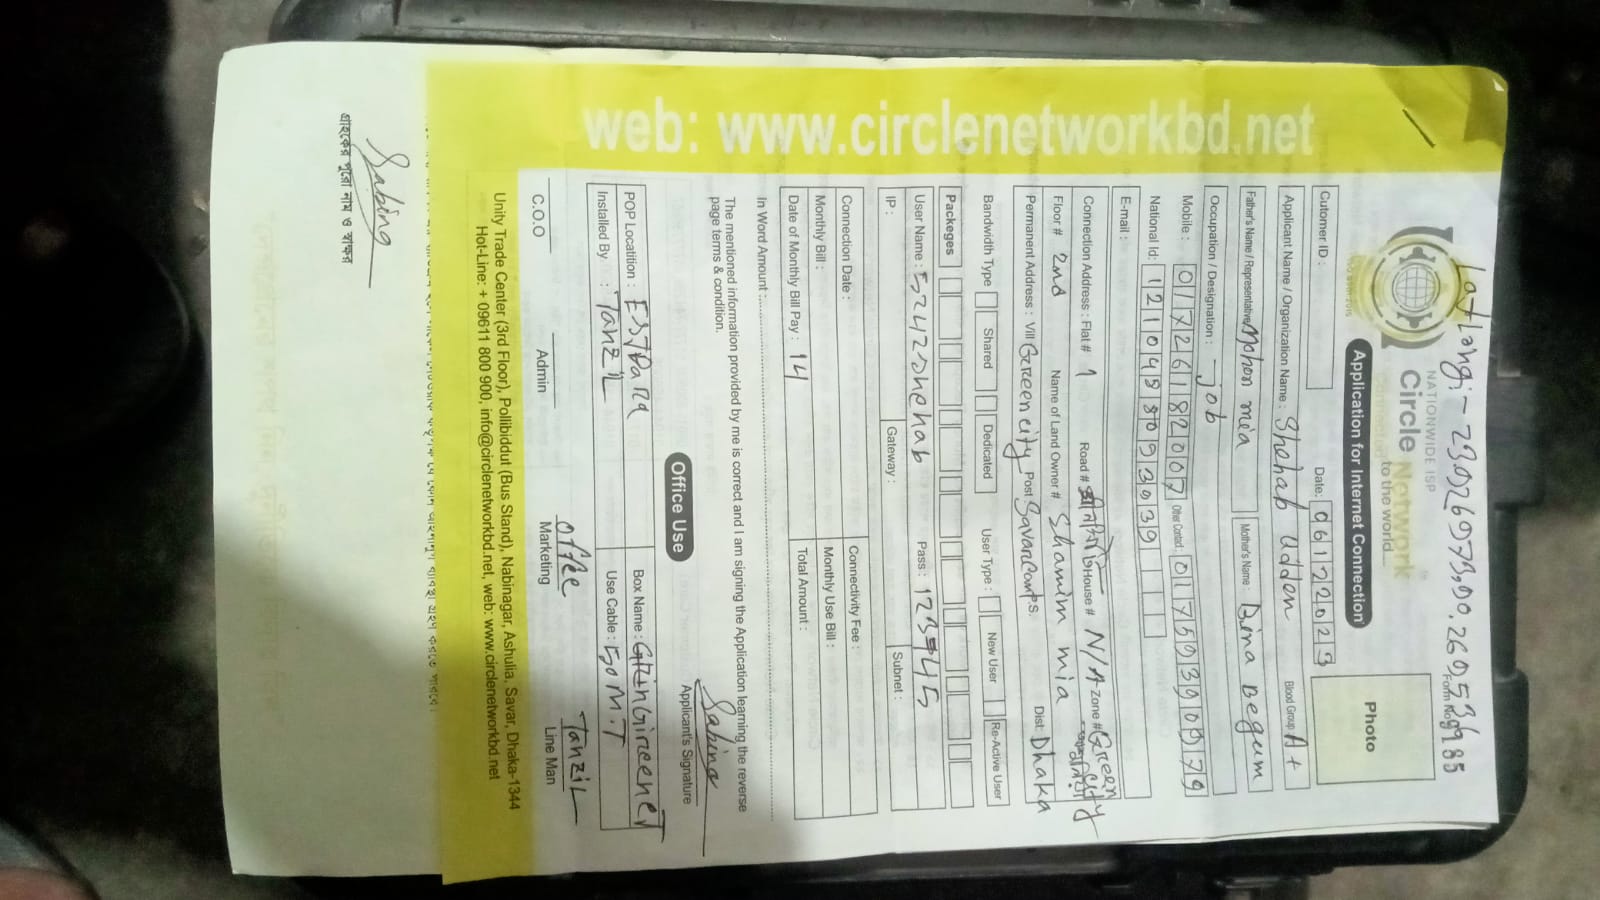 NATIONWIDE ISP
Circle Network
to the world...
Form No 9985
Application for Internet Connection
Cutomer ID :
Date: 06122023
Photo
Applicant Name / Organization Name : Shehab Udden
Blood Group: A+
Father's Name / Representative
mohon mia
Mother's Name : Bina Begum
Occupation / Designation : - job
Mobile : 01726182007
Other Contact : 01750390979
National Id: 1210458093039
E-mail :
Connection Address : Flat # 1 Road # House # N/A Zone # Green City
Floor # 2nd Name of Land Owner # Shamim mia
Permanent Address : Vill Green city Post Savar Dist: Dhaka
Bandwidth Type Shared Dedicated User Type : New User Re-Active User
Packeges
User Name : 52420hehab Pass : 12345
IP : Gateway : Subnet :
Connection Date : Connectivity Fee :
Monthly Bill : Monthly Use Bill :
Date of Monthly Bill Pay : 14 Total Amount :
In Word Amount :
The mentioned information provided by me is correct and I am signing the Application learning the reverse
page terms & condition.
Sabina
Applicant's Signature
Office Use
POP Locatition : Box Name :
Installed By : Tanzil Use Cable : 50 M.T
office Tanzil
C.O.O Admin Marketing Line Man
Unity Trade Center (3rd Floor), Pollibiddut (Bus Stand), Nabinagar, Ashulia, Savar, Dhaka-1344
Hot-Line: + 09611 800 900, info@circlenetworkbd.net, web: www.circlenetworkbd.net
web: www.circlenetworkbd.net
Sabina
গ্রাহকের পুরো নাম ও স্বাক্ষর